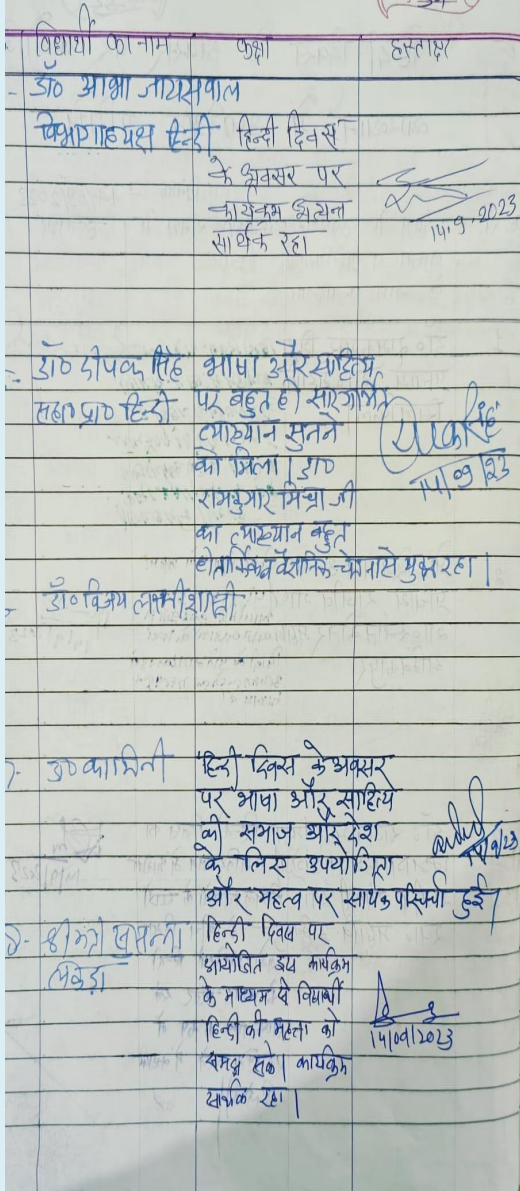 विद्यार्थी का नाम कक्षा हस्ताक्षर
डॉ० आभा जायसवाल
विभागाध्यक्ष हिन्दी हिन्दी दिवस
के अवसर पर
कार्यक्रम अत्यन्त
सार्थक रहा
14.9.2023
डॉ० दीपक सिंह भाषा और साहित्य
सहा० प्रा० हिन्दी पर बहुत ही सारगर्भित
व्याख्यान सुनने
को मिला। डा०
14/09/23
रामकुमार मिश्रा जी
का व्याख्यान बहुत
ही तार्किक व वैज्ञानिक चेतना से युक्त रहा।
डॉ० विजय लक्ष्मी शास्त्री
डॉ० कामिनी हिन्दी दिवस के अवसर
पर भाषा और साहित्य
की समाज और देश
के लिए उपयोगिता
14/9/23
और महत्व पर सार्थक परिचर्चा हुई।
श्रीमती खुसन्ना हिन्दी दिवस पर
लकड़ा आयोजित इस कार्यक्रम
के माध्यम से विद्यार्थी
हिन्दी की महत्ता को
14/09/2023
समझ सके। कार्यक्रम
सार्थक रहा।